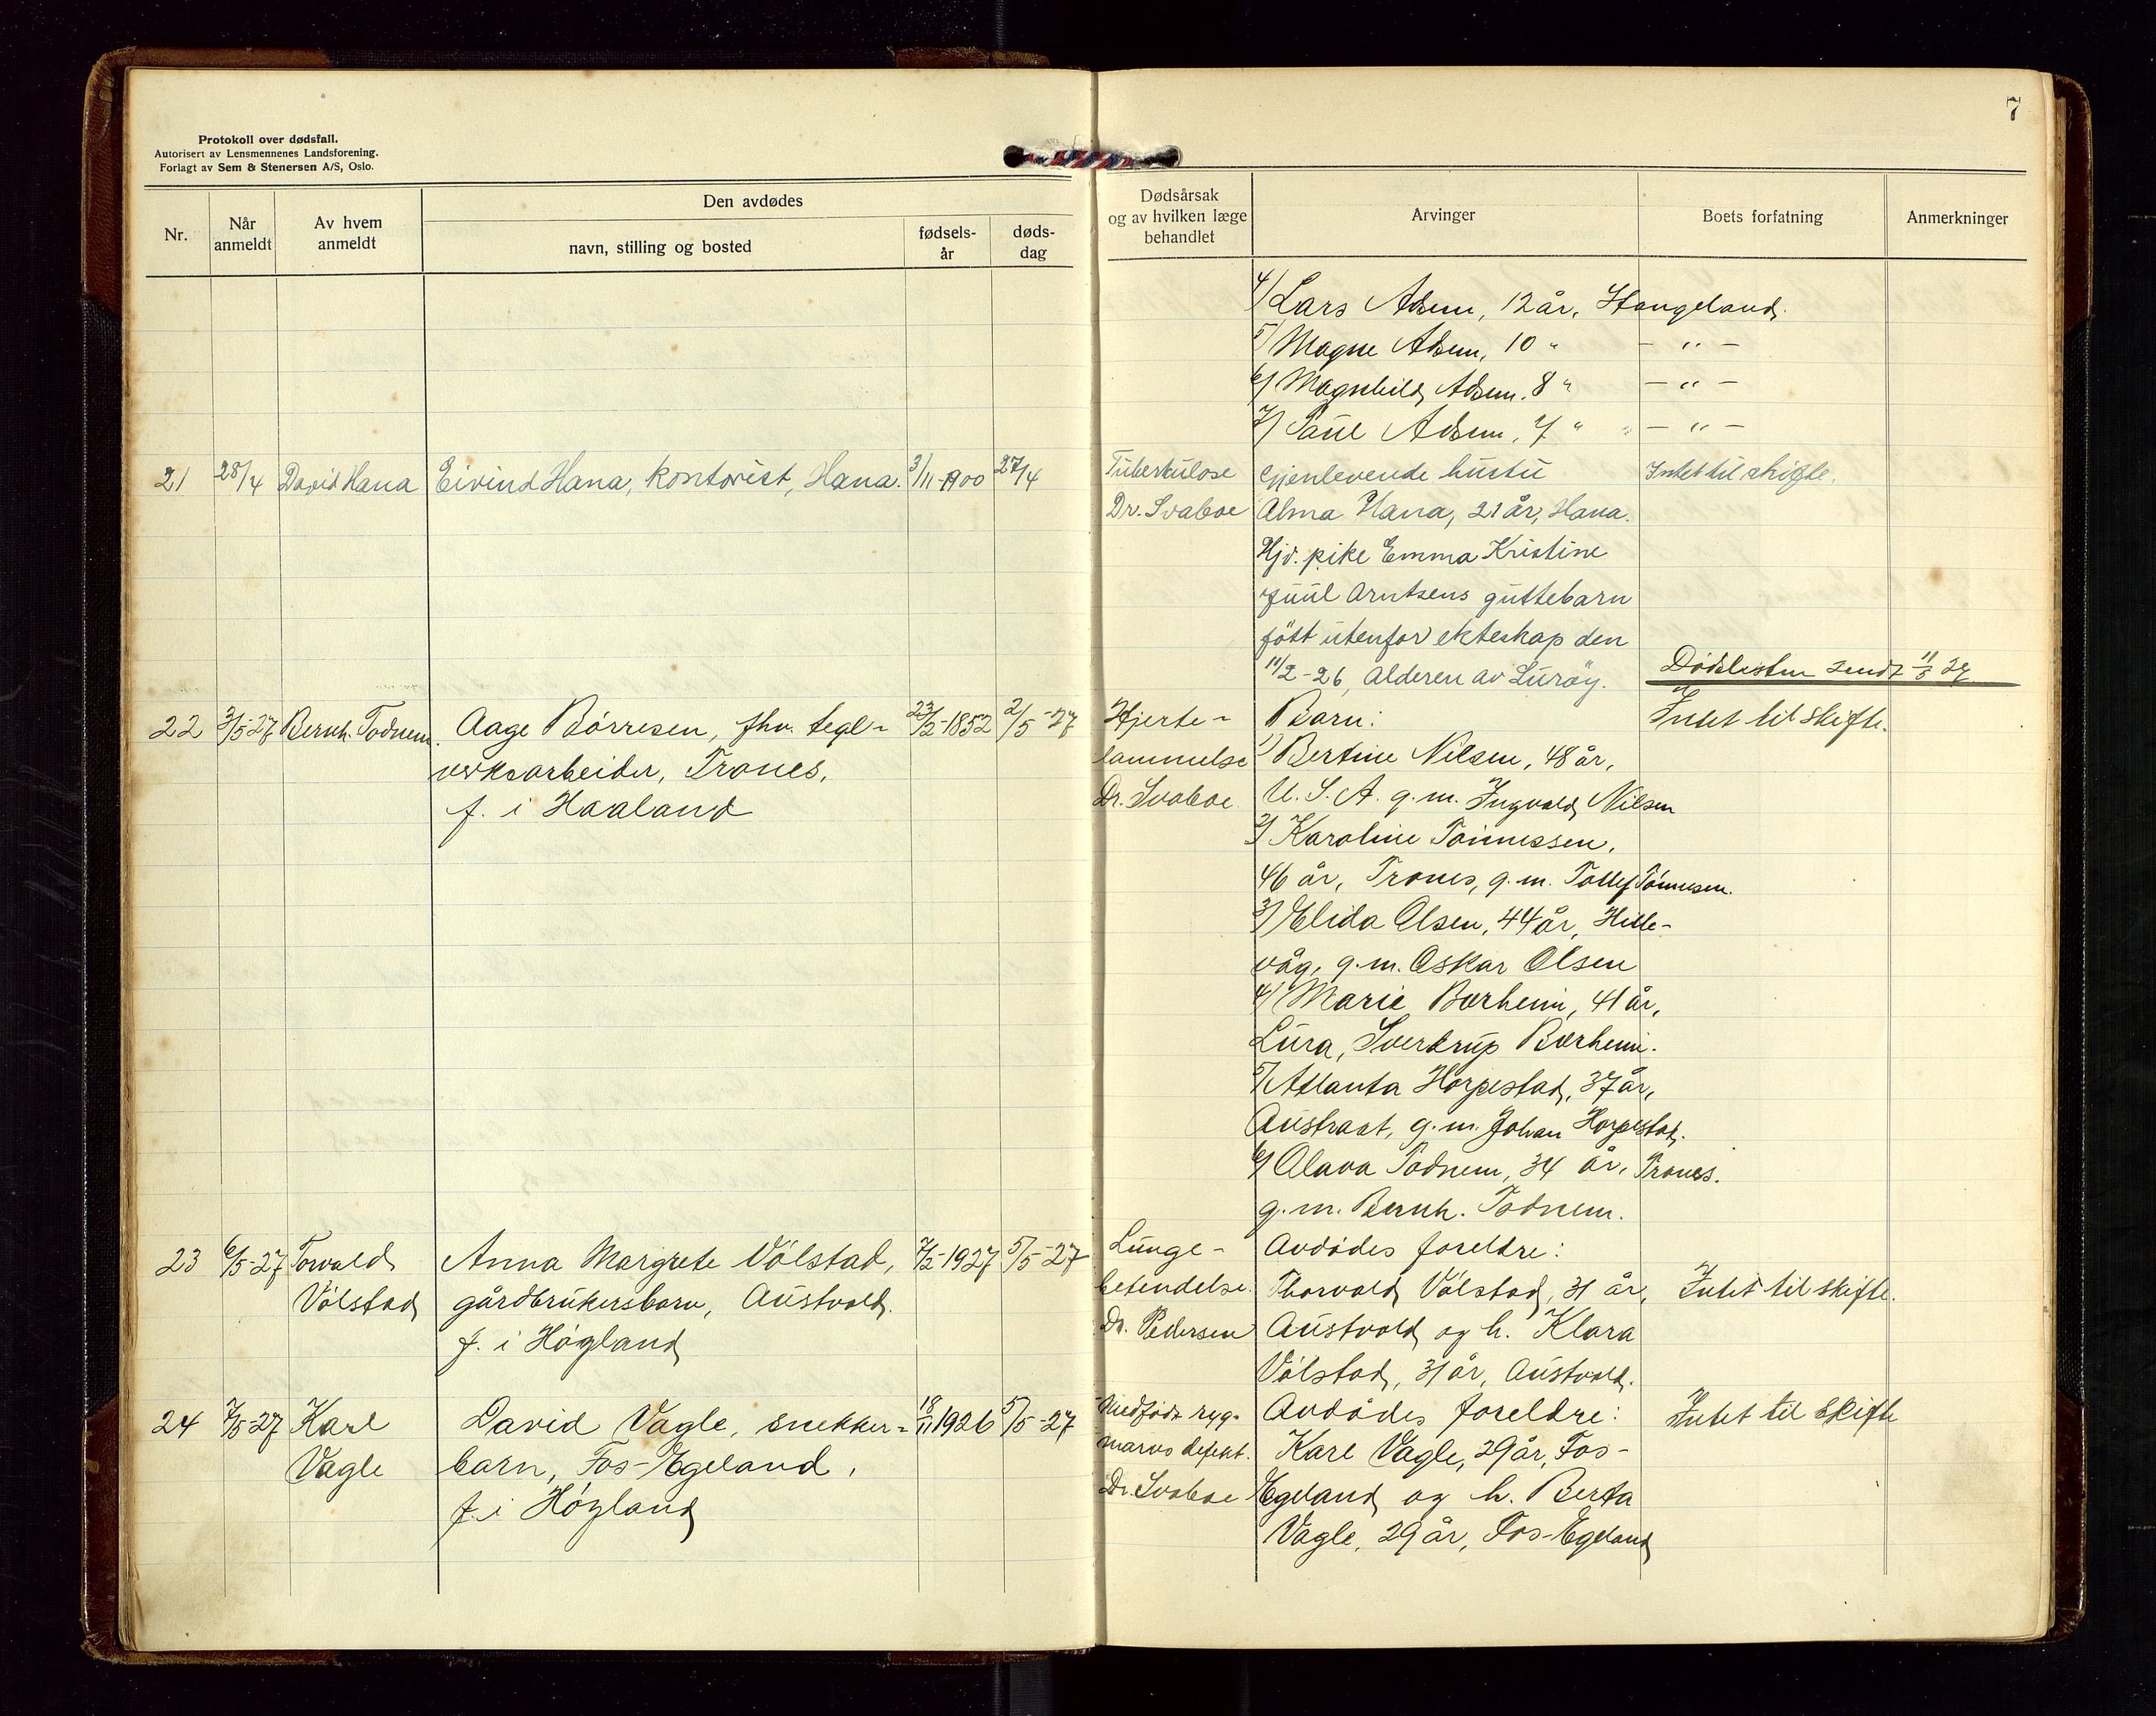 7
Protokoll over dødsfall.
Autorisert av Lensmennenes Landsforening.
Forlagt av Sem & Stenersen A/S, Oslo.
Nr.
Når anmeldt
Av hvem anmeldt
Den avdødes
navn, stilling og bosted
fødselsår
dødsdag
Dødsårsak
og av hvilken læge
behandlet
Arvinger
Boets forfatning
Anmerkninger
4/ Lars Adsem, 12 år, Stangeland.
5/ Magne Adsem, 10 " - " -
6/ Magnhild Adsem. 8 " - " -
7/ Paul Adsem, 7 " - " -
21 28/4 David Hana Eivind Hana, kontorist, Hana. 3/11-1900 27/4 Tuberkulose Gjenlevende hustu Intet til skifte.
Dr. Svaboe Alma Hana, 21 år, Hana.
Hjv. pike Emma Kristine
Juul Arntsens guttebarn
født utenfor ekteskap den
11/2-26, Alderen av Lurøy.
Dødslisten sendt 11/5 27
22 3/5-27 Bernh. Todnem. Aage Børresen, fhv. tegl- 23/2-1852 2/5-27 Hjerte- Barn: Intet til skifte.
verksarbeider, Trones, lammelse 1) Bertine Nilsen, 48 år,
f. i Haaland Dr. Svaboe U.S.A. g.m. Ingvald Nilsen
2/ Karoline Tønnessen,
46 år, Trones, g.m. Tollef Tønnesen.
3/ Elida Olsen, 44 år, Hille-
våg, g.m. Oskar Olsen
4/ Marie Bærheim, 41 år,
Lura, Sverdrup Bærheim.
5/ Atlanta Horpestad, 37 år,
Austraat, g.m. Johan Horpestad.
6/ Olava Todnem, 34 år, Trones.
g.m. Bernh. Todnem.
23 6/5-27 Torvald Anna Margrete Vølstad, 7/2-1927 5/5-27 Lunge- Avdødes foreldre:
Vølstad gårdbrukersbarn, Austvold. betendelse. Thorvald Vølstad, 31 år, Intet til skifte.
f. i Høgland Dr. Pedersen Austvold og h. Klara
Vølstad, 31 år, Austvold.
24 7/5-27 Karl David Vagle, snekker- 18/11 1926 5/5-27 Medfødt ryg- Avdødes foreldre: Intet til skifte
Vagle barn, Fos-Egeland, marvs defekt. Karl Vagle, 29 år, Fos-
f. i Høgland Dr. Svaboe Egeland og h. Berta
Vagle, 29 år, Fos-Egeland